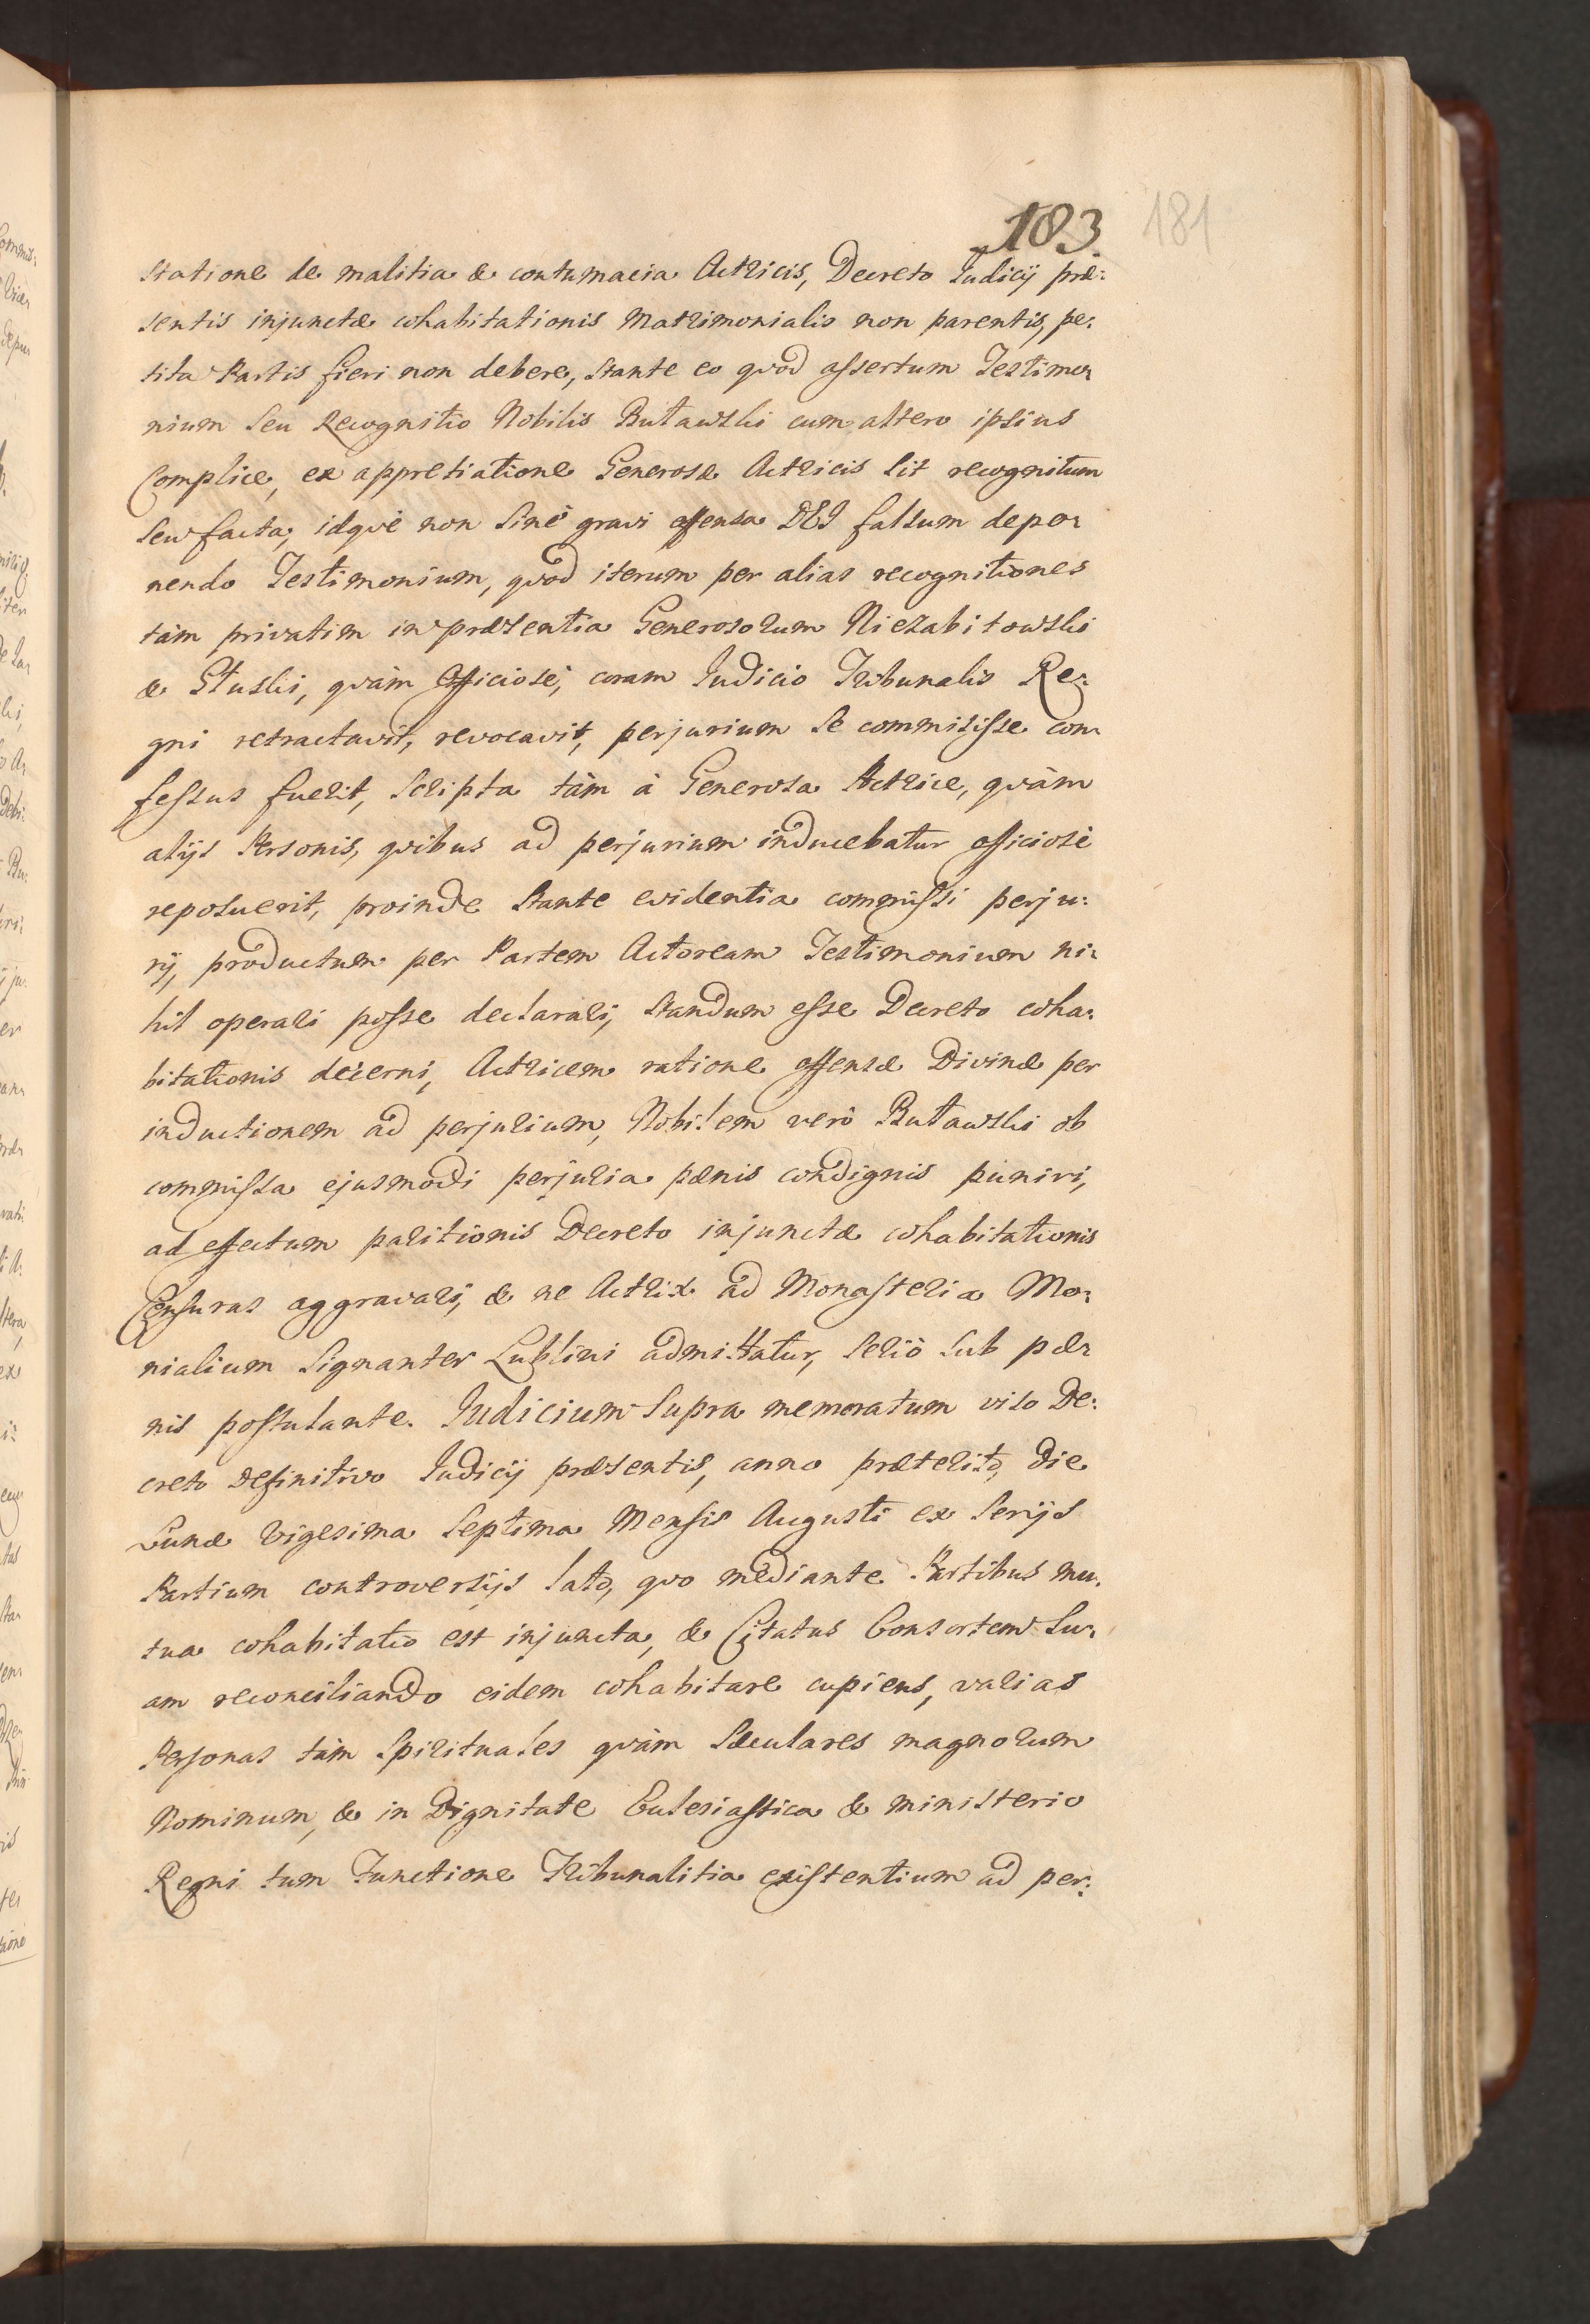 183. 181
statione de malitia & contumacia Actricis, Decreto Judicij præ:
sentis injunctæ cohabitationis Matrimonialis non parentis, pe:
tita Partis fieri non debere, stante eo quod assertum Testimo:
nium seu Recognitio Nobilis Buławski cum altero ipsius
Complice, ex appretiatione Generosæ Actricis sit recognitum
seu facta, idquè non sinè gravi offensa DEI falsum depo:
nendo Testimonium, quod iterum per alias recognitiones
tàm privatim in præsentia Generosorum Niezabitowski
& Głuski, quàm Officiosè, coram Judicio Tribunalis Re:
gni retractavit, revocavit, perjurium se commisisse con:
fessus fuerit, scripta tàm à Generosa Actrice, quàm
alijs Personis, quibus ad perjurium inducebatur officiosè
reposuerit, proinde stante evidentia commissi perju:
rij, productum per Partem Actoream Testimonium ni:
hil operari posse declarari, standum esse Decreto coha:
bitationis decerni, Actricem ratione offensæ Divinæ per
inductionem ad perjurium, Nobilem verò Buławski ob
commissa ejusmodi perjuria pænis condignis puniri,
ad effectum paritionis Decreto injunctæ cohabitationis
Censuras aggravari, & ne Actrix ad Monasteria Mo:
nialium signanter Lublini admittatur, seriò sub pæ:
nis postulante. Judicium supra memoratum viso De:
creto Definitivo Judicij præsentis, anno præterito, die
Lunæ vigesima septima Mensis Augusti ex serijs
Partium controversijs lato, quo mediante Partibus mu:
tua cohabitatio est injuncta, & Citatus Consortem su:
am reconciliando eidem cohabitare cupiens, varias
Personas tàm Spirituales quàm Sæculares magnorum
Nominum, & in Dignitate Ecclesiastica & ministerio
Regni tum Functione Tribunalitia existentium ad per: